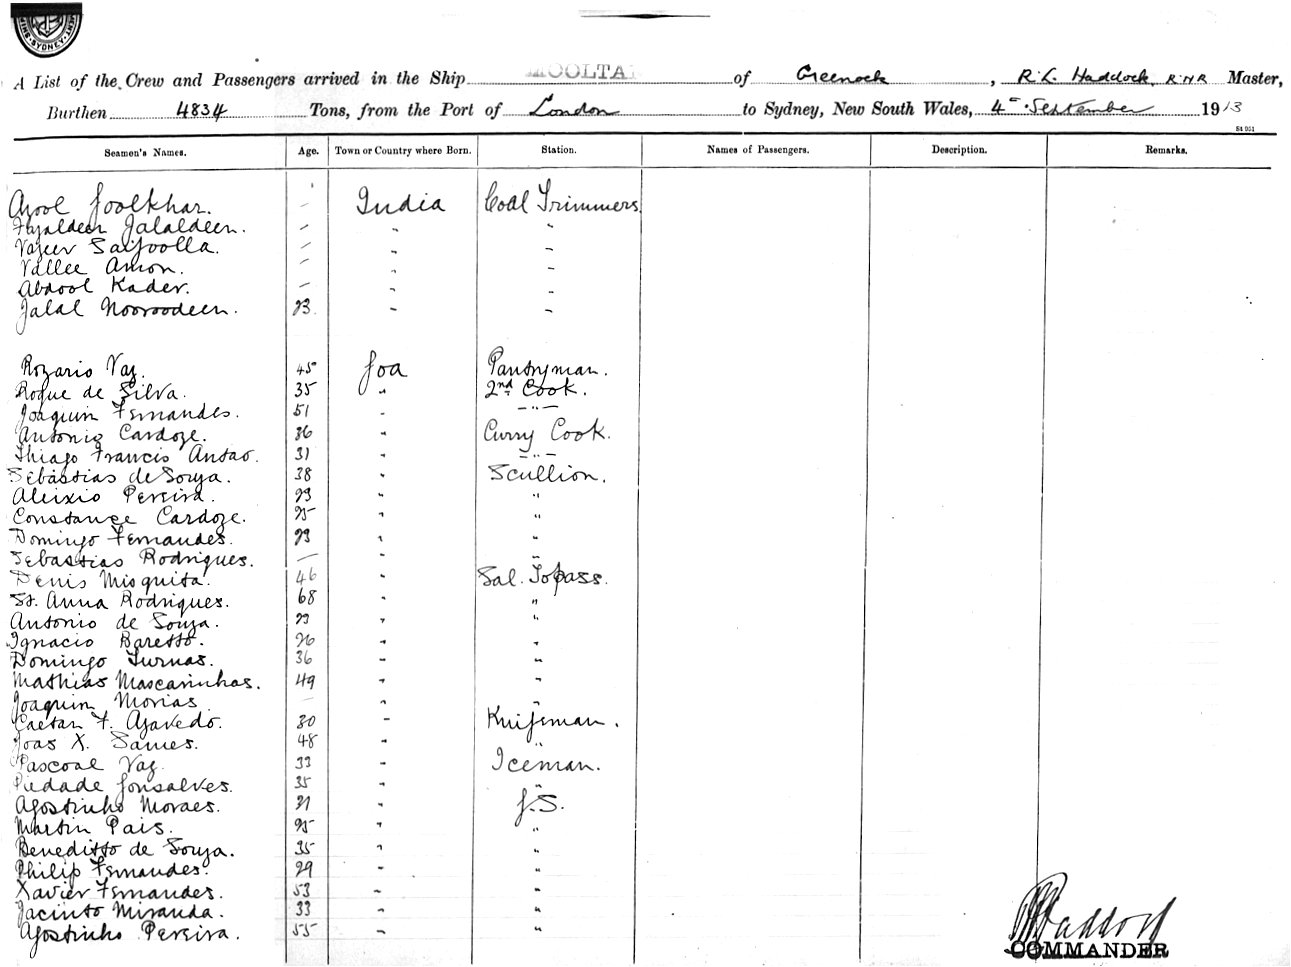 SYDNEY
A List of the Crew and Passengers arrived in the Ship MOOLTAN of Greenock, R. L. Haddock, R.N.R Master,
Burthen 4834 Tons, from the Port of London to Sydney, New South Wales, 4th September 1913
St 951
Seamen's Names. Age. Town or Country where Born. Station. Names of Passengers. Description. Remarks.
Goolkhar. – India Coal Trimmers
Fyjaldeen Jalaldeen. – " "
Vajeer Saifoolla. – " "
Vallee Amon. – " "
Abdool Kader. – " "
Jalal Nooroodeen. 23. " "
Rozario Vaz. 45 Goa Pantryman.
Roque de Silva. 35 " 2nd Cook.
Joaquim Fernandes. 51 " "
Antonio Cardoze. 36 " Curry Cook.
Thiago Francis Antao. 31 " "
Sebastias de Souza. 38 " Scullion.
Aleixio Pereira. 23 " "
Constance Cardoze. 25 " "
Domingo Fernandes. 23 " "
Sebastias Rodrigues. – " "
Denis Misquita. 46 " Sal. Topass.
St. Anna Rodrigues. 68 " "
Antonio de Souza. 23 " "
Ignacio Baretto. 26 " "
Domingo Furnas. 36 " "
Mathias Mascarinhas. 49 " "
Joaquim Morias – " "
Caetan F. Azavedo. 30 " Knifeman.
Joas X. 48 " "
Pascoal Vaz. 33 " Iceman.
Piedade Gonsalves. 35 " "
Agostinho Moraes. 21 " G.S.
Martin Pais. 25 " "
Beneditto de Souza. 35 " "
Philip Fernandes. 29 " "
Xavier Fernandes. 53 " "
Jacinto Miranda. 33 " "
Agostinho Pereira. 55 " "
Haddock
COMMANDER